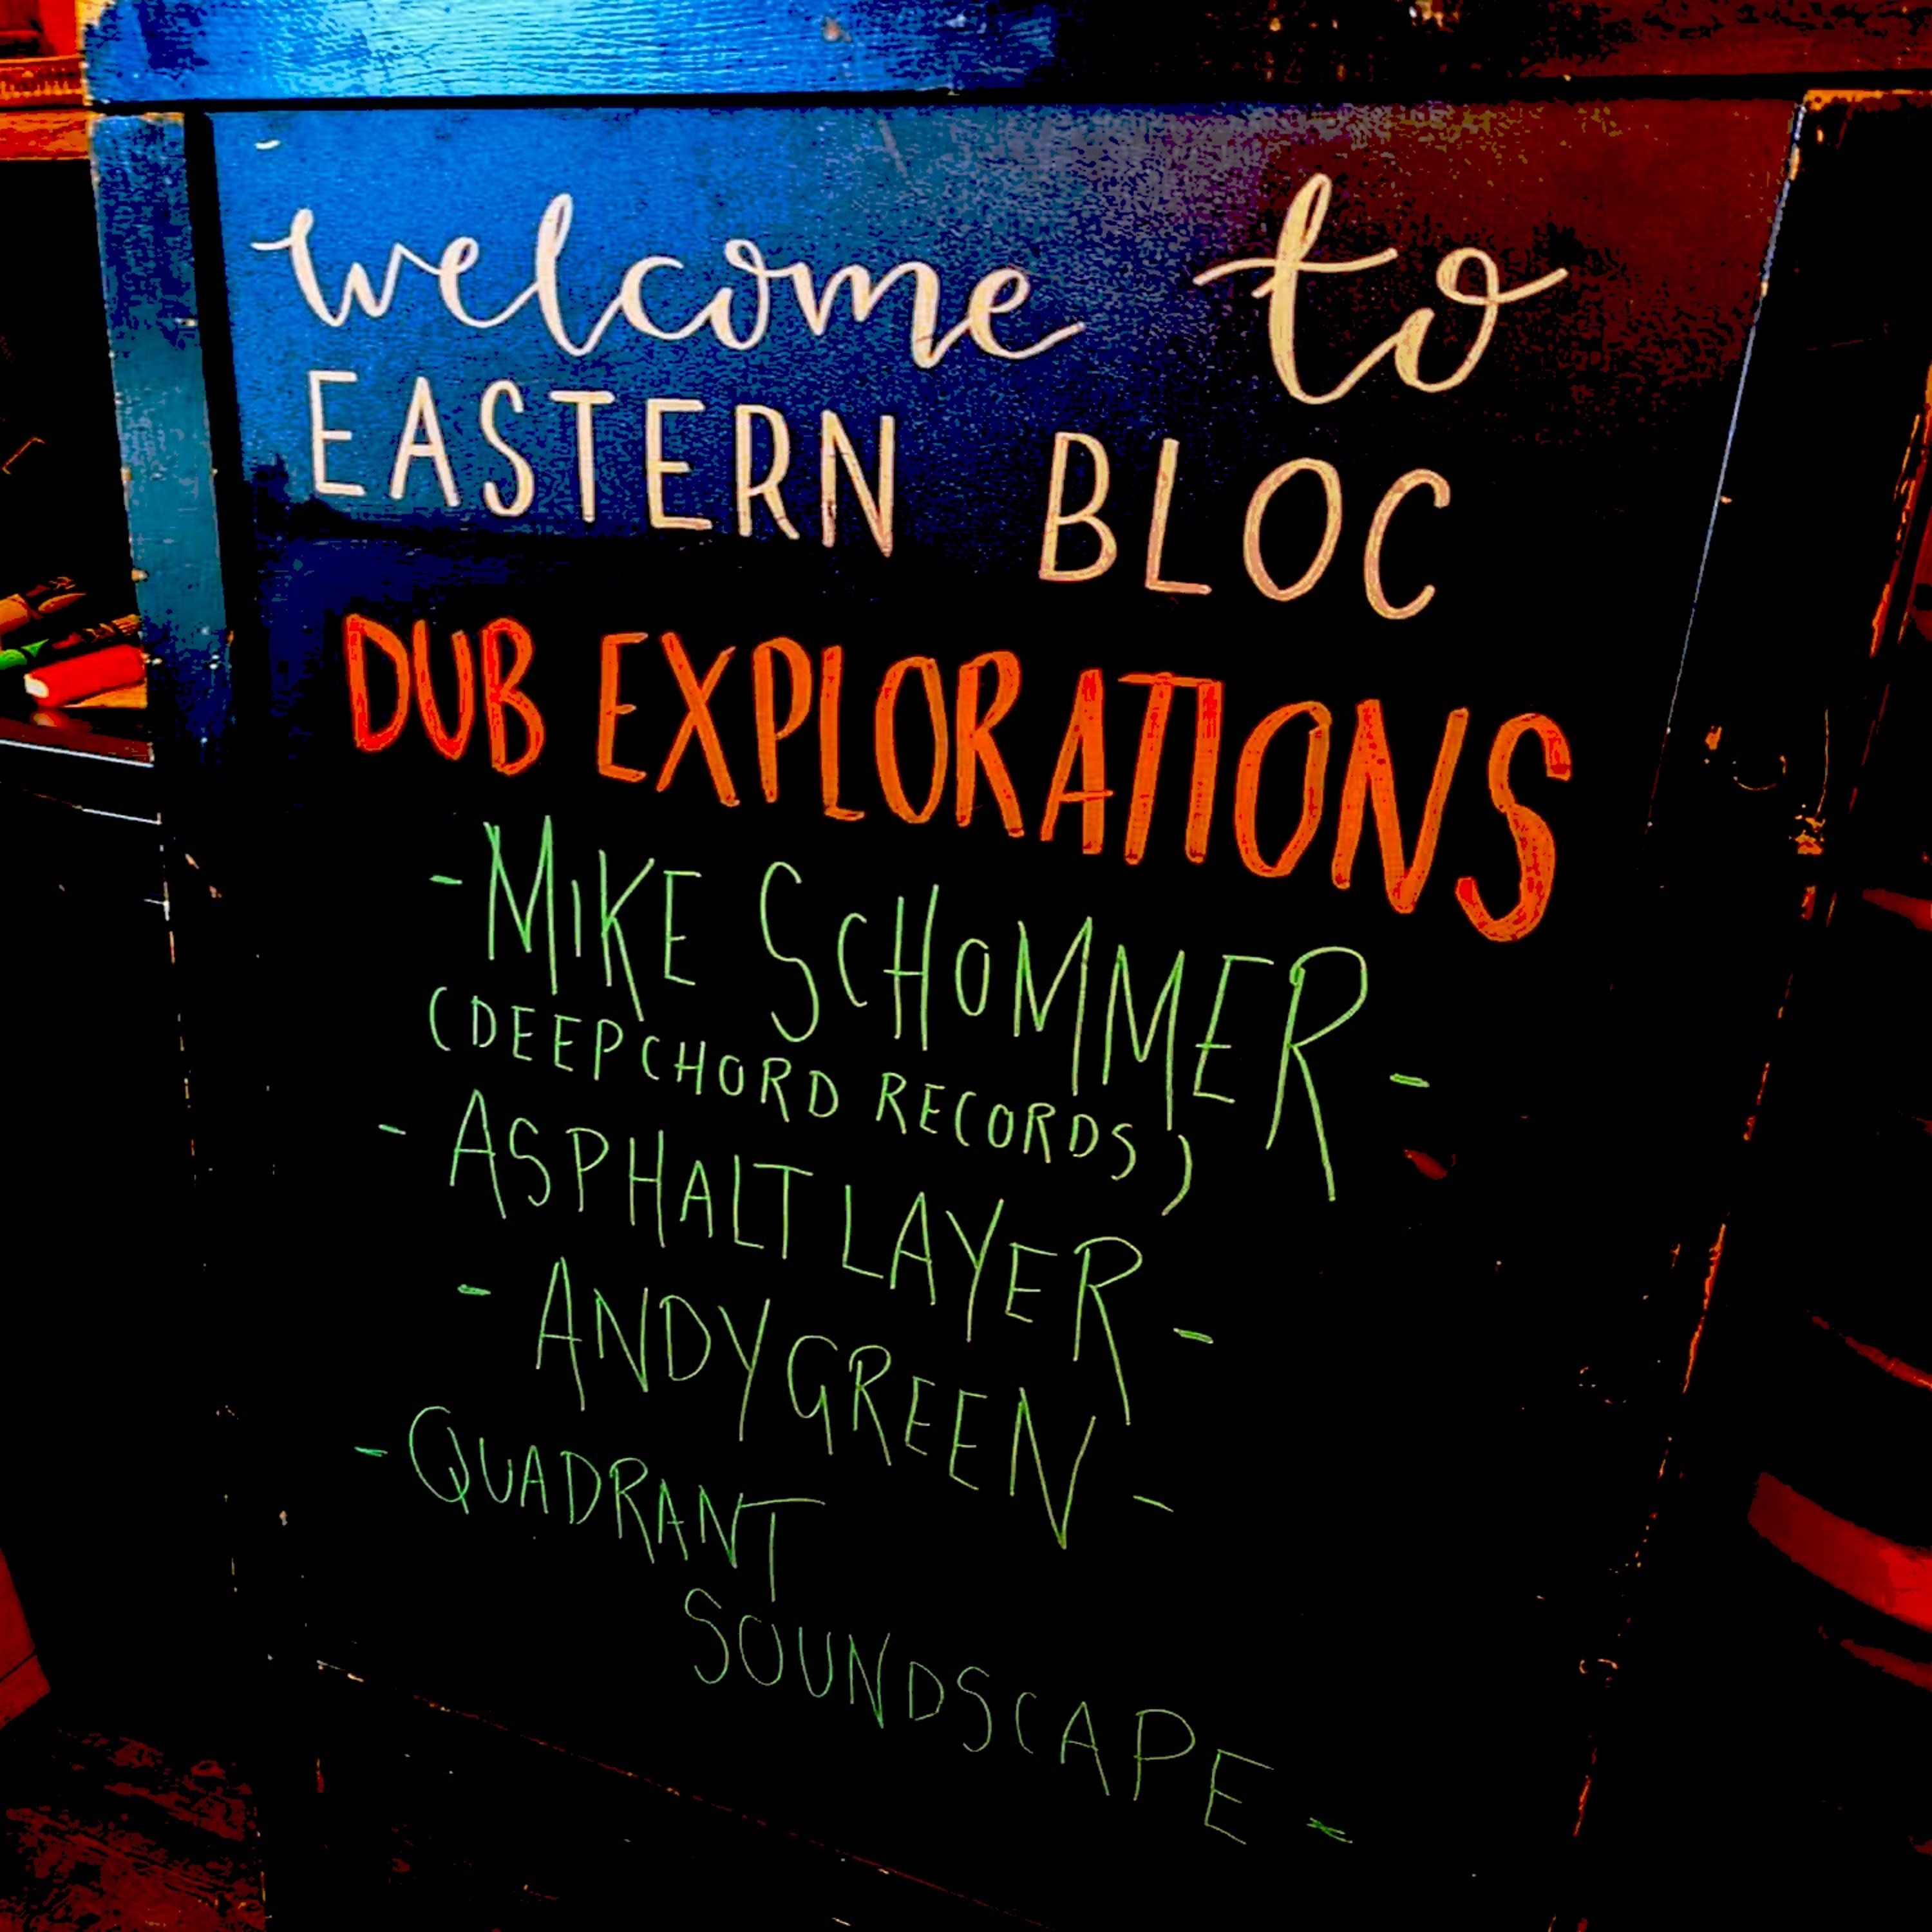 welcome to
EASTERN BLOC
DUB EXPLORATIONS
- MIKE SCHOMMER -
(DEEPCHORD RECORDS)
- ASPHALT LAYER -
- ANDY GREEN -
- QUADRANT
SOUNDSCAPE -